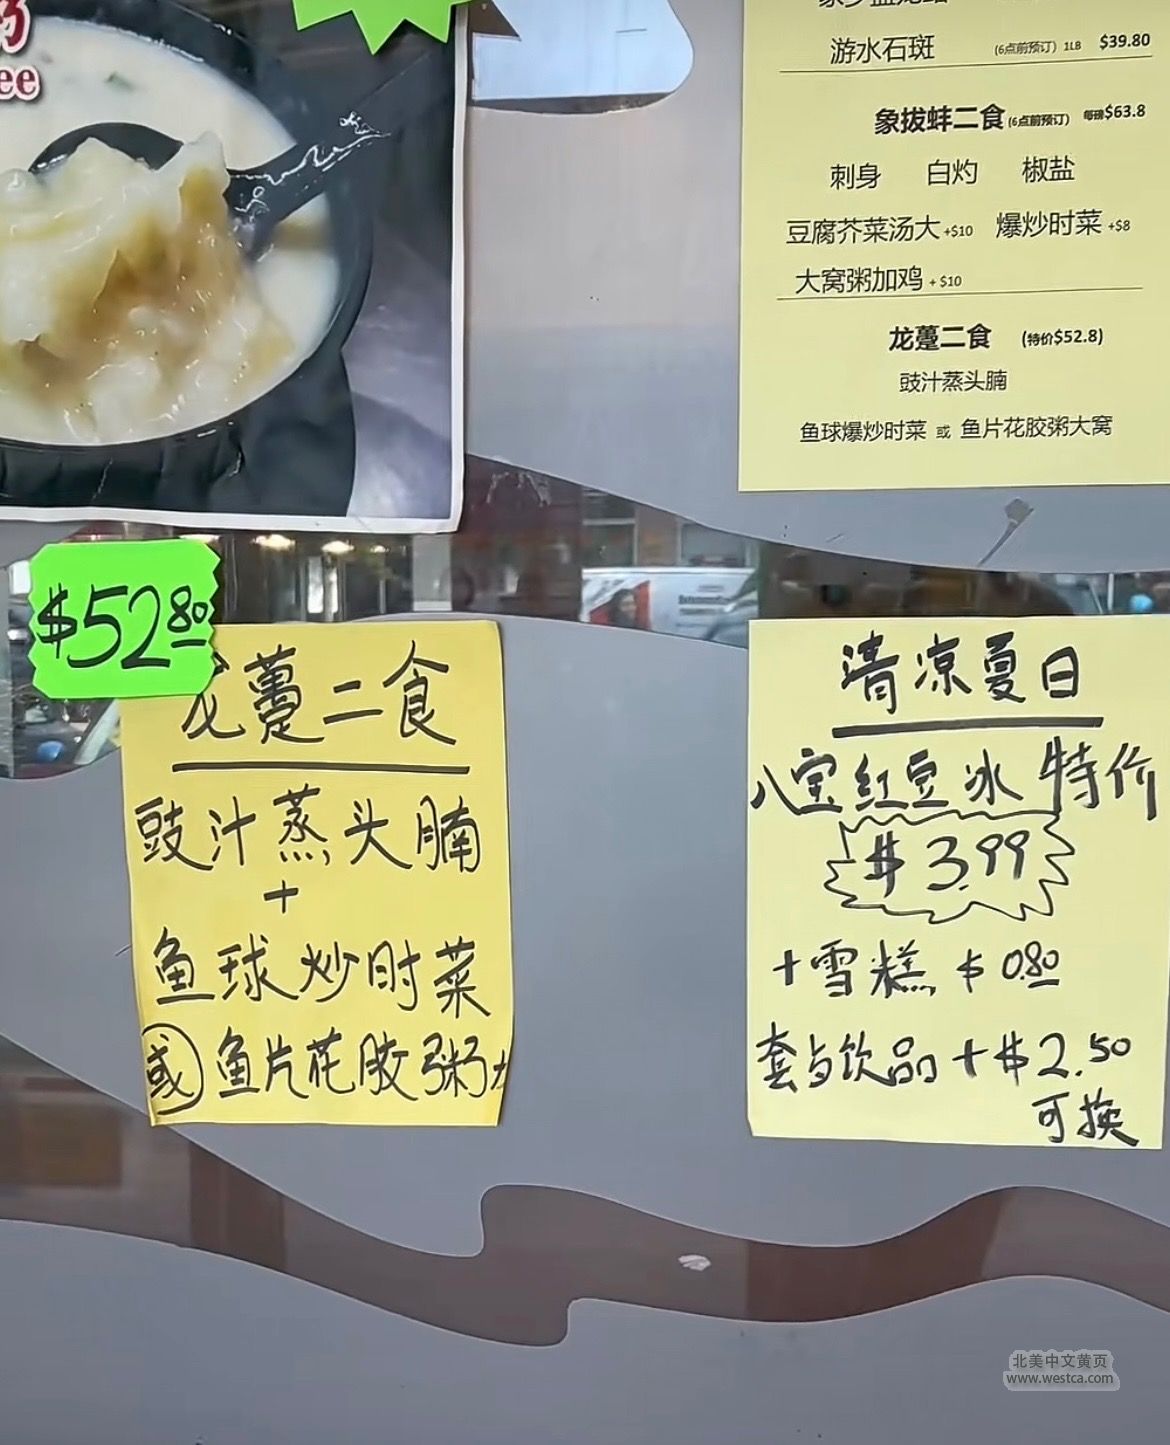 ee
游水石斑 (6点前预订) 1LB $39.80
象拔蚌二食 (6点前预订) 每磅$63.8
刺身 白灼 椒盐
豆腐芥菜汤大 +$10 爆炒时菜 +$8
大窝粥加鸡 + $10
龙趸二食 (特价$52.8)
豉汁蒸头腩
鱼球爆炒时菜 或 鱼片花胶粥大窝
$52.80
龙趸二食
豉汁蒸头腩
+
鱼球炒时菜
或 鱼片花胶粥大
清凉夏日
八宝红豆冰特价
$3.99
+雪糕 $0.80
套与饮品+$2.50
可换
北美中文黄页
www.westca.com